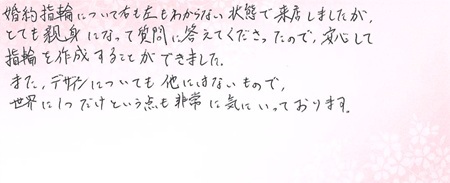 婚約指輪について右も左もわからない状態で来店しましたが、
とても親身になって質問に答えてくださったので、安心して
指輪を作成することができました。
また、デザインについても他にはないもので、
世界に1つだけという点も非常に気にいっております。